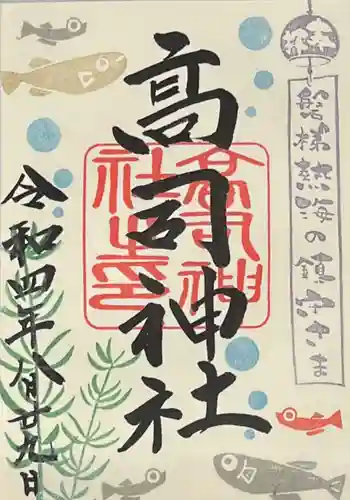 磐梯熱海の鎮守さま
高司神社
高司神社之印
令和四年八月廿九日